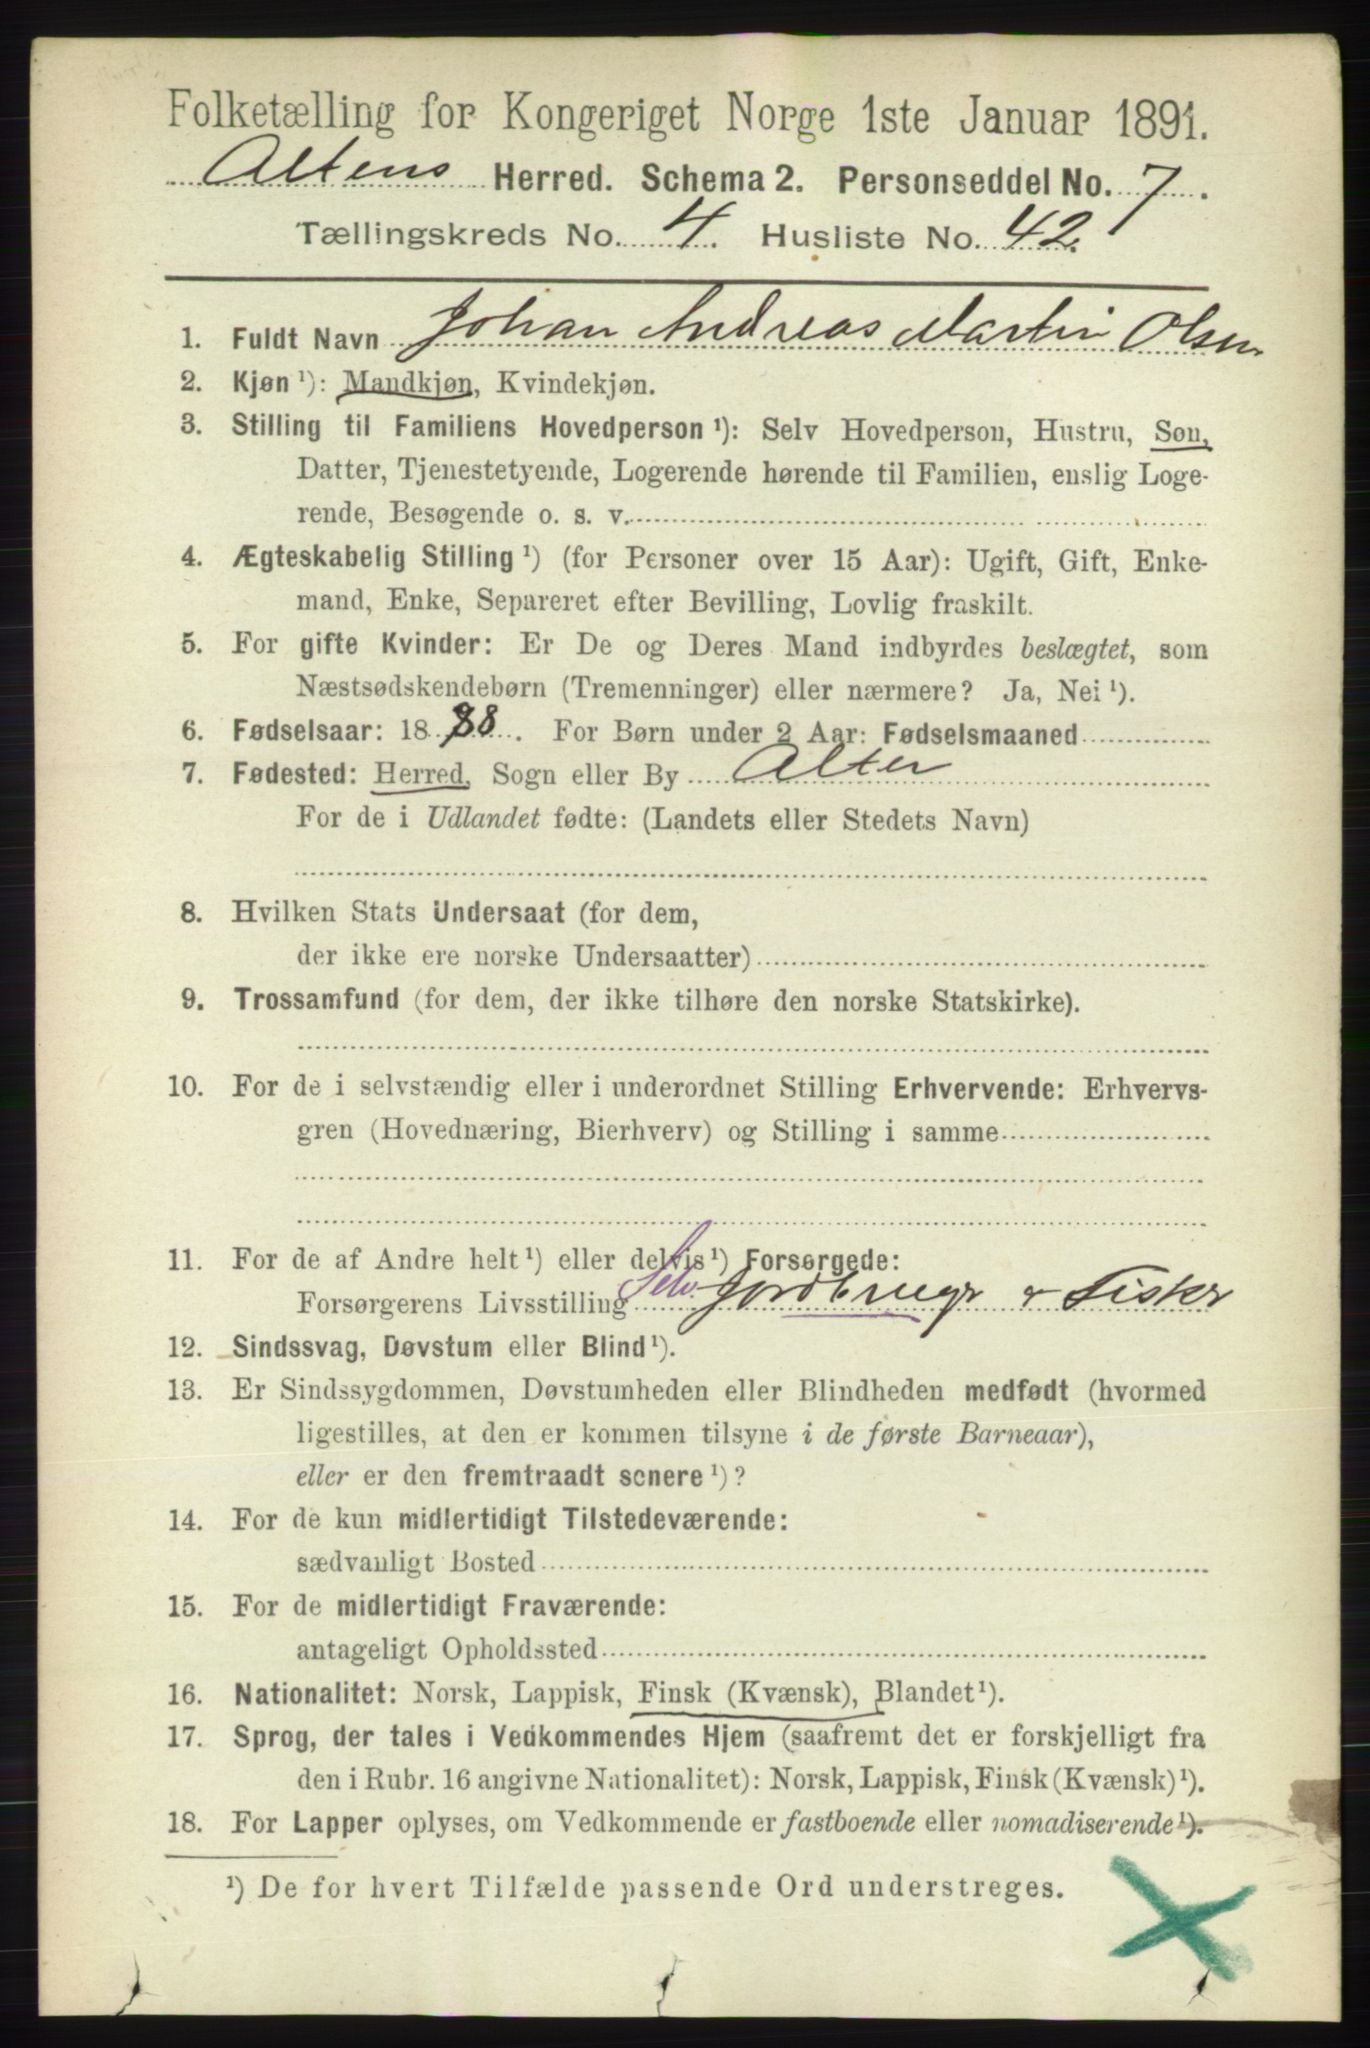 Folketælling for Kongeriget Norge 1ste Januar 1891.
Altens Herred. Schema 2. Personseddel No. 7.
Tællingskreds No. 4. Husliste No. 42.
1. Fuldt Navn Johan Andreas Martin Olsen
2. Kjøn ¹): Mandkjøn, Kvindekjøn.
3. Stilling til Familiens Hovedperson ¹): Selv Hovedperson, Hustru, Søn,
Datter, Tjenestetyende, Logerende hørende til Familien, enslig Loge-
rende, Besøgende o. s. v.
4. Ægteskabelig Stilling ¹) (for Personer over 15 Aar): Ugift, Gift, Enke-
mand, Enke, Separeret efter Bevilling, Lovlig fraskilt.
5. For gifte Kvinder: Er De og Deres Mand indbyrdes beslægtet, som
Næstsødskendebørn (Tremenninger) eller nærmere? Ja, Nei ¹).
6. Fødselsaar: 1888. For Børn under 2 Aar: Fødselsmaaned
7. Fødested: Herred, Sogn eller By Alten
For de i Udlandet fødte: (Landets eller Stedets Navn)
8. Hvilken Stats Undersaat (for dem,
der ikke ere norske Undersaatter)
9. Trossamfund (for dem, der ikke tilhøre den norske Statskirke).
10. For de i selvstændig eller i underordnet Stilling Erhvervende: Erhvervs-
gren (Hovednæring, Bierhverv) og Stilling i samme
11. For de af Andre helt ¹) eller delvis ¹) Forsørgede:
Forsørgerens Livsstilling Selv. Jordbruger & Fisker
12. Sindssvag, Døvstum eller Blind ¹).
13. Er Sindssygdommen, Døvstumheden eller Blindheden medfødt (hvormed
ligestilles, at den er kommen tilsyne i de første Barneaar),
eller er den fremtraadt senere ¹)?
14. For de kun midlertidigt Tilstedeværende:
sædvanligt Bosted
15. For de midlertidigt Fraværende:
antageligt Opholdssted
16. Nationalitet: Norsk, Lappisk, Finsk (Kvænsk), Blandet ¹).
17. Sprog, der tales i Vedkommendes Hjem (saafremt det er forskjelligt fra
den i Rubr. 16 angivne Nationalitet): Norsk, Lappisk, Finsk (Kvænsk) ¹).
18. For Lapper oplyses, om Vedkommende er fastboende eller nomadiserende ¹).
¹) De for hvert Tilfælde passende Ord understreges.